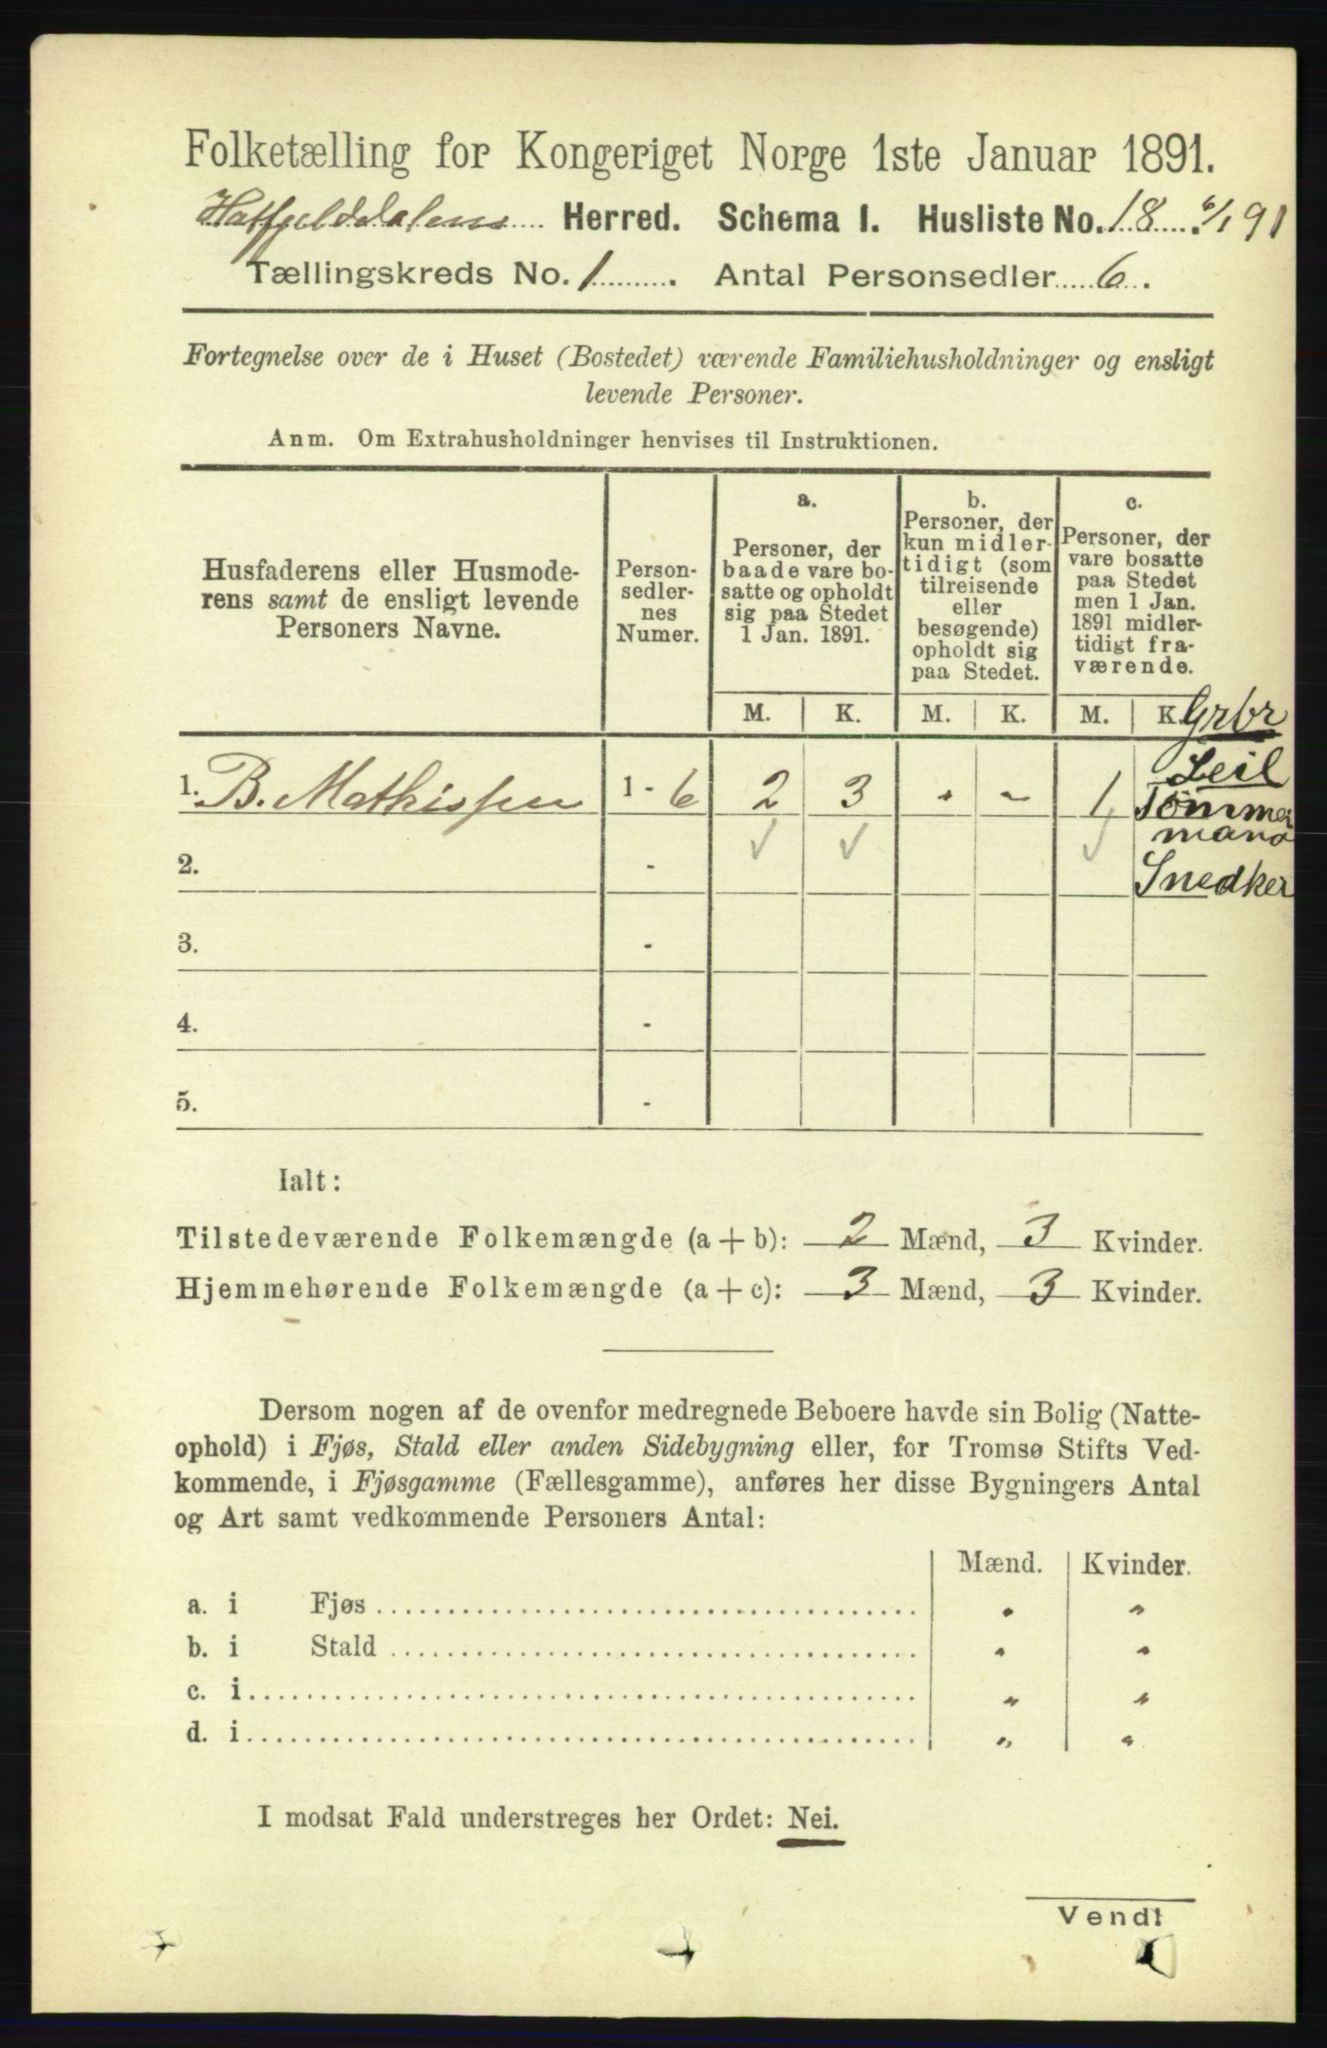 Folketælling for Kongeriget Norge 1ste Januar 1891.
Hatfjelddalens Herred. Schema I. Husliste No. 18. 6/1 91
Tællingskreds No. 1. Antal Personsedler 6.
Fortegnelse over de i Huset (Bostedet) værende Familiehusholdninger og ensligt
levende Personer.
Anm. Om Extrahusholdninger henvises til Instruktionen.
Husfaderens eller Husmode-
rens samt de ensligt levende
Personers Navne.
Person-
sedler-
nes
Numer.
a.
Personer, der
baade vare bo-
satte og opholdt
sig paa Stedet
1 Jan. 1891.
b.
Personer, der
kun midler-
tidigt (som
tilreisende
eller
besøgende)
opholdt sig
paa Stedet.
c.
Personer, der
vare bosatte
paa Stedet
men 1 Jan.
1891 midler-
tidigt fra-
værende.
M. K. M. K. M. K.
Grbr
Leil
Tømmer
mand
Snedker
1. B. Mathissen 1 - 6 2 3 1
2. -
3. -
4. -
5. -
Ialt:
Tilstedeværende Folkemængde (a + b): 2 Mænd, 3 Kvinder.
Hjemmehørende Folkemængde (a + c): 3 Mænd, 3 Kvinder.
Dersom nogen af de ovenfor medregnede Beboere havde sin Bolig (Natte-
ophold) i Fjøs, Stald eller anden Sidebygning eller, for Tromsø Stifts Ved-
kommende, i Fjøsgamme (Fællesgamme), anføres her disse Bygningers Antal
og Art samt vedkommende Personers Antal:
Mænd. Kvinder.
a. i Fjøs " "
b. i Stald " "
c. i " "
d. i " "
I modsat Fald understreges her Ordet: Nei.
Vend!